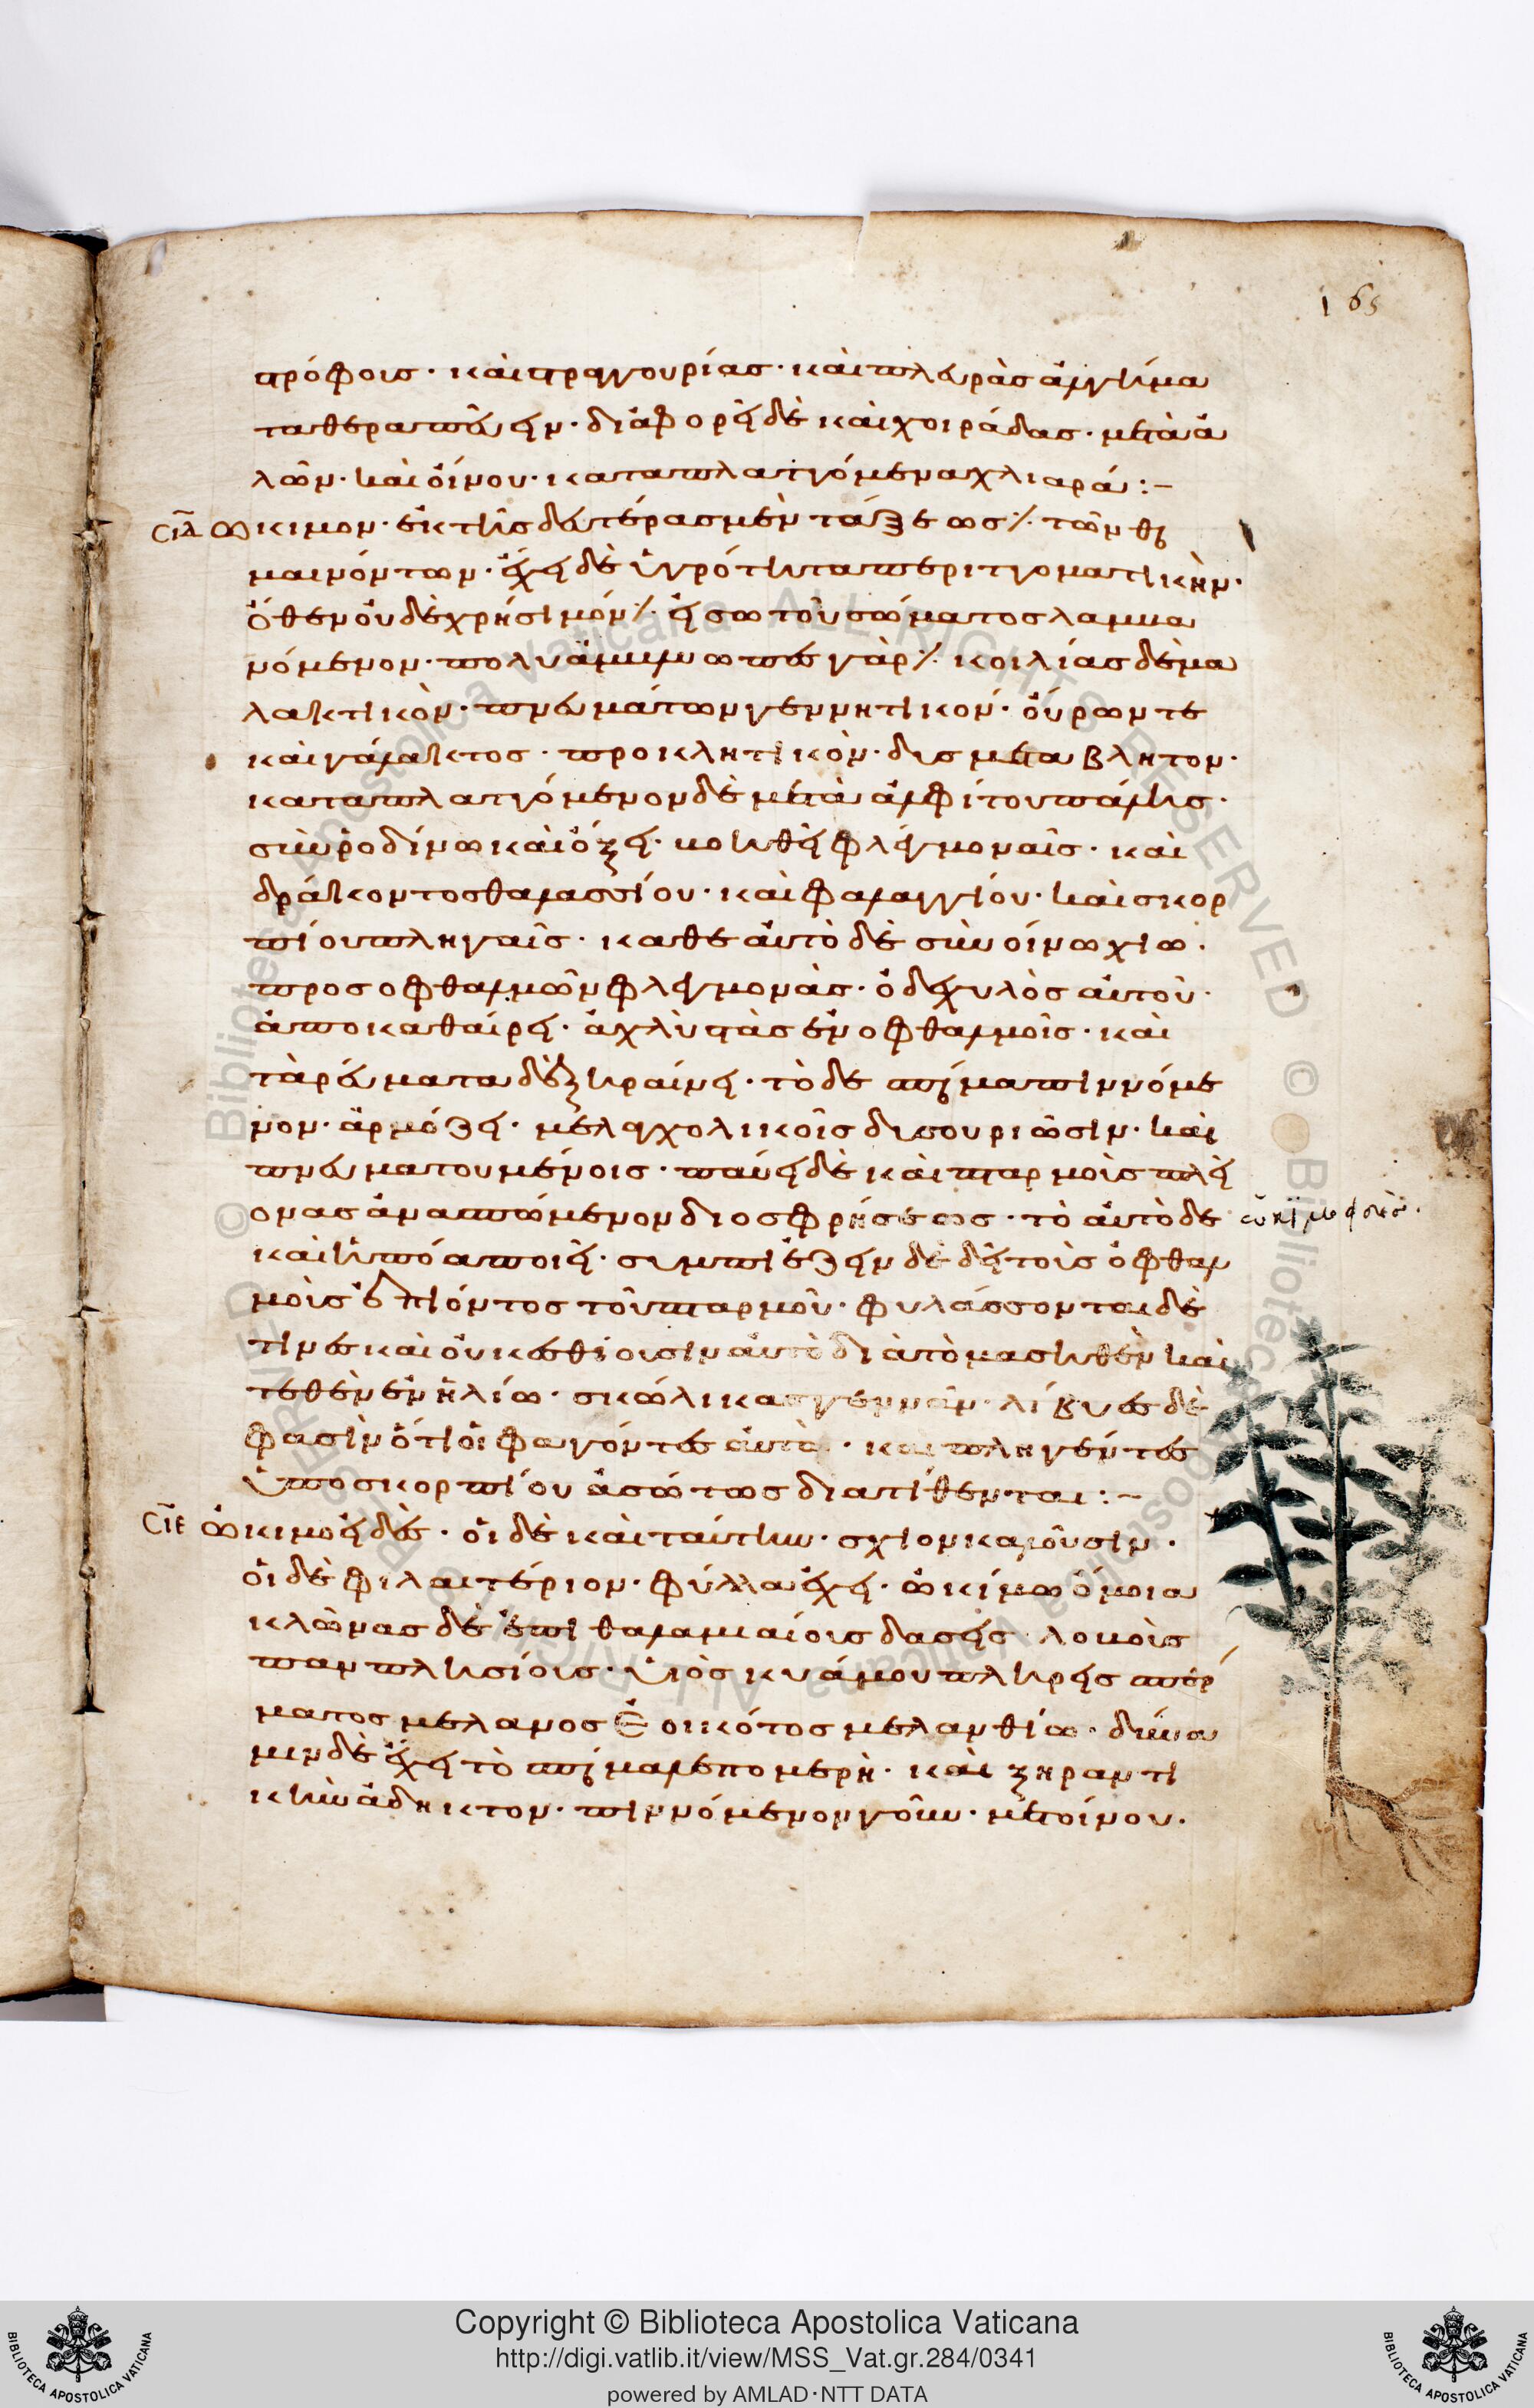 165
στρόφοις · καὶ στραγγουρίας · καὶ πλευρὰς ἀλγήμα
τα θεραπεύειν · διαφορεῖ δὲ καὶ χοιράδας · μετὰ ἁ
λῶν · καὶ οἴνου · καταπλασσόμενα χλιαρά :-
σιδ ὤκιμον · ἐκ τῆς δευτέρας μὲν τάξεως ⁒ τῶν θερ
μαινόντων · ἔχει δὲ ὑγρότητα περιττωματικὴν ·
ὅθεν οὐδὲ χρήσιμόν ⁒ εἴσω τοῦ σώματος λαμβα
νόμενον · πολὺ ἀμβλυωπὲς γὰρ ⁒ κοιλίας δὲ μα
λακτικὸν · πνευμάτων γεννητικόν · οὔρων τε
καὶ γάλακτος · προκλητικὸν · δυσμετάβλητον ·
καταπλασσόμενον δὲ μετὰ ἀλφίτου πάλης ·
σὺν ῥοδίνω καὶ ὄξει · βοηθεῖ φλεγμοναῖς · καὶ
δράκοντος θαλασσίου · καὶ φαλαγγίου · καὶ σκορ
πίου πληγαῖς · καθ ἑαυτὸ δὲ σὺν οἴνω χίω ·
προς οφθαλμῶν φλεγμονὰς · ὁ δὲ χυλὸς αὐτοῦ ·
ἀποκαθαίρει · ἀχλὺς τὰς ἐν οφθαλμοῖς · καὶ
τὰ ρεύματα δὲ ξηραίνει · τὸ δε σπέρμα πιννόμε
νον · ἁρμόζει · μελαγχολικοῖς δυσουριῶσιν · καὶ
πνευματουμένοις · παύει δὲ καὶ πταρμοὺς πλεί
ονας ἀνασπώμενον δι οσφρήσεως · τὸ αὐτὸ δε
ὤκιμ
καὶ ἡ πόα ποιεῖ · συμπιέζειν δὲ δεῖ τοὺς ὀφθαλ
μοὺς ἐπιόντος τοῦ πταρμοῦ · φυλάσσονται δὲ
τινὲς καὶ οὐκ εσθίουσιν αὐτὸ διὰ τὸ μασηθὲν καὶ
τεθὲν ἐν ἡλίω · σκώληκας γεννᾶν · λίβυες δὲ
φασὶν ὅτι οἱ φαγόντες αὐτὸ · και πληγέντες
ὑπο σκορπίου ἀσώτως διατίθενται :-
σιε ὠκιμοειδὲς · οἱ δὲ καὶ ταύτην · σχιον καλοῦσιν ·
οἱ δὲ φιλαιτέριον · φύλλα ἔχει · ὠκίμω ὅμοια
κλῶνας δὲ ἐπὶ θαλαμιαίους δασεῖς λοβοὺς
παμπλησίους · ὑὸς κυάμου πλήρεις σπέρ
ματος μέλανος ἐοικότος μελανθίω · δύνα
μιν δὲ ἔχει τὸ σπέρμα λεπτομερῆ · καὶ ξηραντι
κὴν ἄδηκτον · πιννόμενον γοῦν · μετ οίνου ·
Copyright © Biblioteca Apostolica Vaticana
http://digi.vatlib.it/view/MSS_Vat.gr.284/0341
powered by AMLAD·NTT DATA